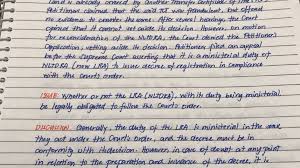 land is already covered by Another Transfer Certificate of the
Petitioners claimed that the said OCT was fraudulent, but offered
no evidence to counter the same. After several hearings the Court
opined that it cannot set aside its decision. However, on motion
for reconsideration of the NLTDRA, the Court denied the Petitioners'
Application, setting aside its decision. Petitioner filed an appeal
before the Supreme Court asserting that it is a ministerial duty of
NLTDRA (now LRA) to issue decree of registration in compliance
with the Court's order.
ISSUE: Whether or not the LRA (NLTDRA), with its duty being ministerial
be legally obligated to follow the Court's order.
DECISION: Generally, the duty of the LRA is ministerial in the sense
they act under the Court's order, and the decree must be in
conformity with the decision. However in case of doubt at any point
in relation to the preparation and issuance of the decree, it is